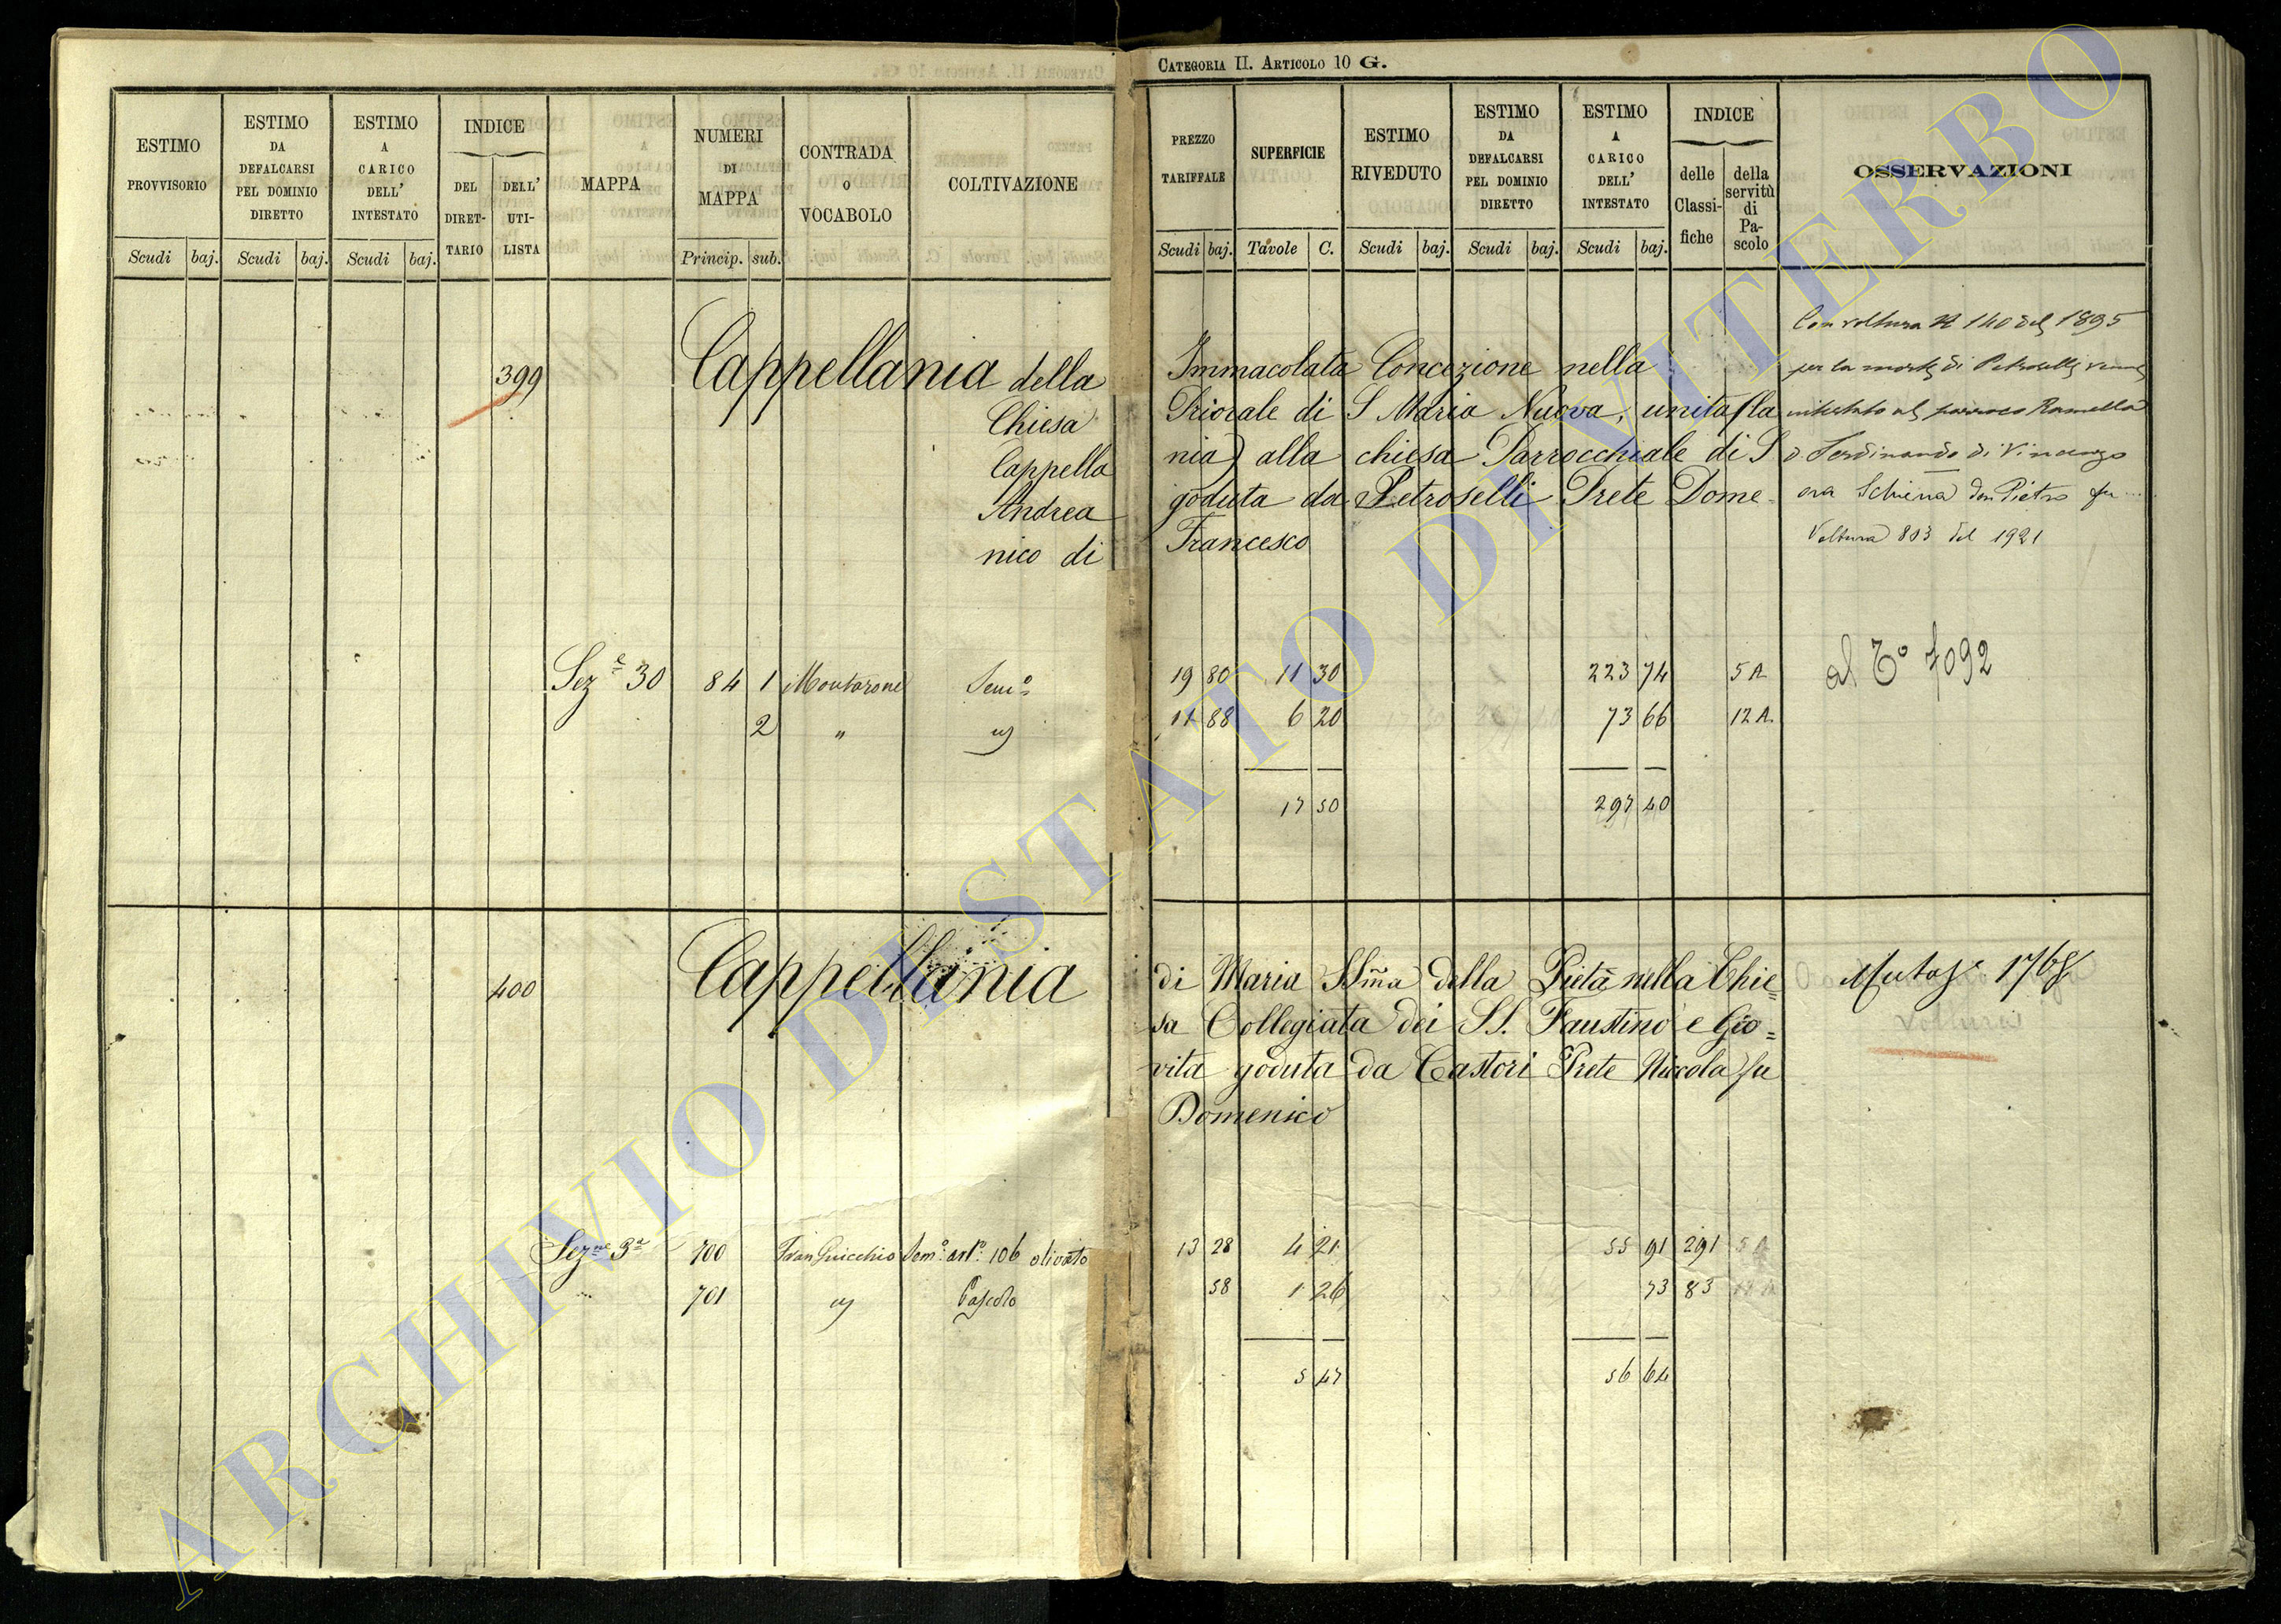 CATEGORIA II. ARTICOLO 10 G.
ESTIMO PROVVISORIO
ESTIMO DA DEFALCARSI PEL DOMINIO DIRETTO
ESTIMO A CARICO DELL' INTESTATO
INDICE
DEL DIRET-TARIO
DELL' UTI-LISTA
MAPPA
NUMERI DI MAPPA
CONTRADA O VOCABOLO
COLTIVAZIONE
Scudi baj. Scudi baj. Scudi baj. Princip. sub.
PREZZO TARIFFALE
SUPERFICIE
ESTIMO RIVEDUTO
ESTIMO DA DEFALCARSI PEL DOMINIO DIRETTO
ESTIMO A CARICO DELL' INTESTATO
INDICE
delle Classi-fiche
della servitù di Pa-scolo
OSSERVAZIONI
Scudi baj. Tavole C. Scudi baj. Scudi baj. Scudi baj.
399 Cappellania della Immacolata Concezione nella
Chiesa Priorale di S Maria Nuova, unita (la
Cappella nia) alla chiesa Parrocchiale di S
Andrea goduta da Petroselli Prete Dome-
nico di Francesco
Con voltura N 140 del 1895
per la morte di Petroselli
intestato al parroco Ramella
D. Ferdinando di Vincenzo
ora Schiena don Pietro fu
Voltura 803 del 1921
Sez.e 30 84 1 Montarone Sem.o 19 80 11 30 223 74 5 A
2 " " 11 88 6 20 73 66 12 A.
17 50 297 40
al T.o 7092
400 Cappellania di Maria SSma della Pietà nella Chie=
sa Collegiata dei SS. Faustino e Gio=
vita goduta da Castori Prete Niccola fu
Domenico
1768
Voltura
Sez.ne 3a 700 Fran Guicchio Sem.o art.o 106 olivato 13 28 4 21 55 91 291 5 A
701 " Pascolo 58 1 26 73 83 12 A
5 47 56 64
ARCHIVIO DI STATO DI VITERBO